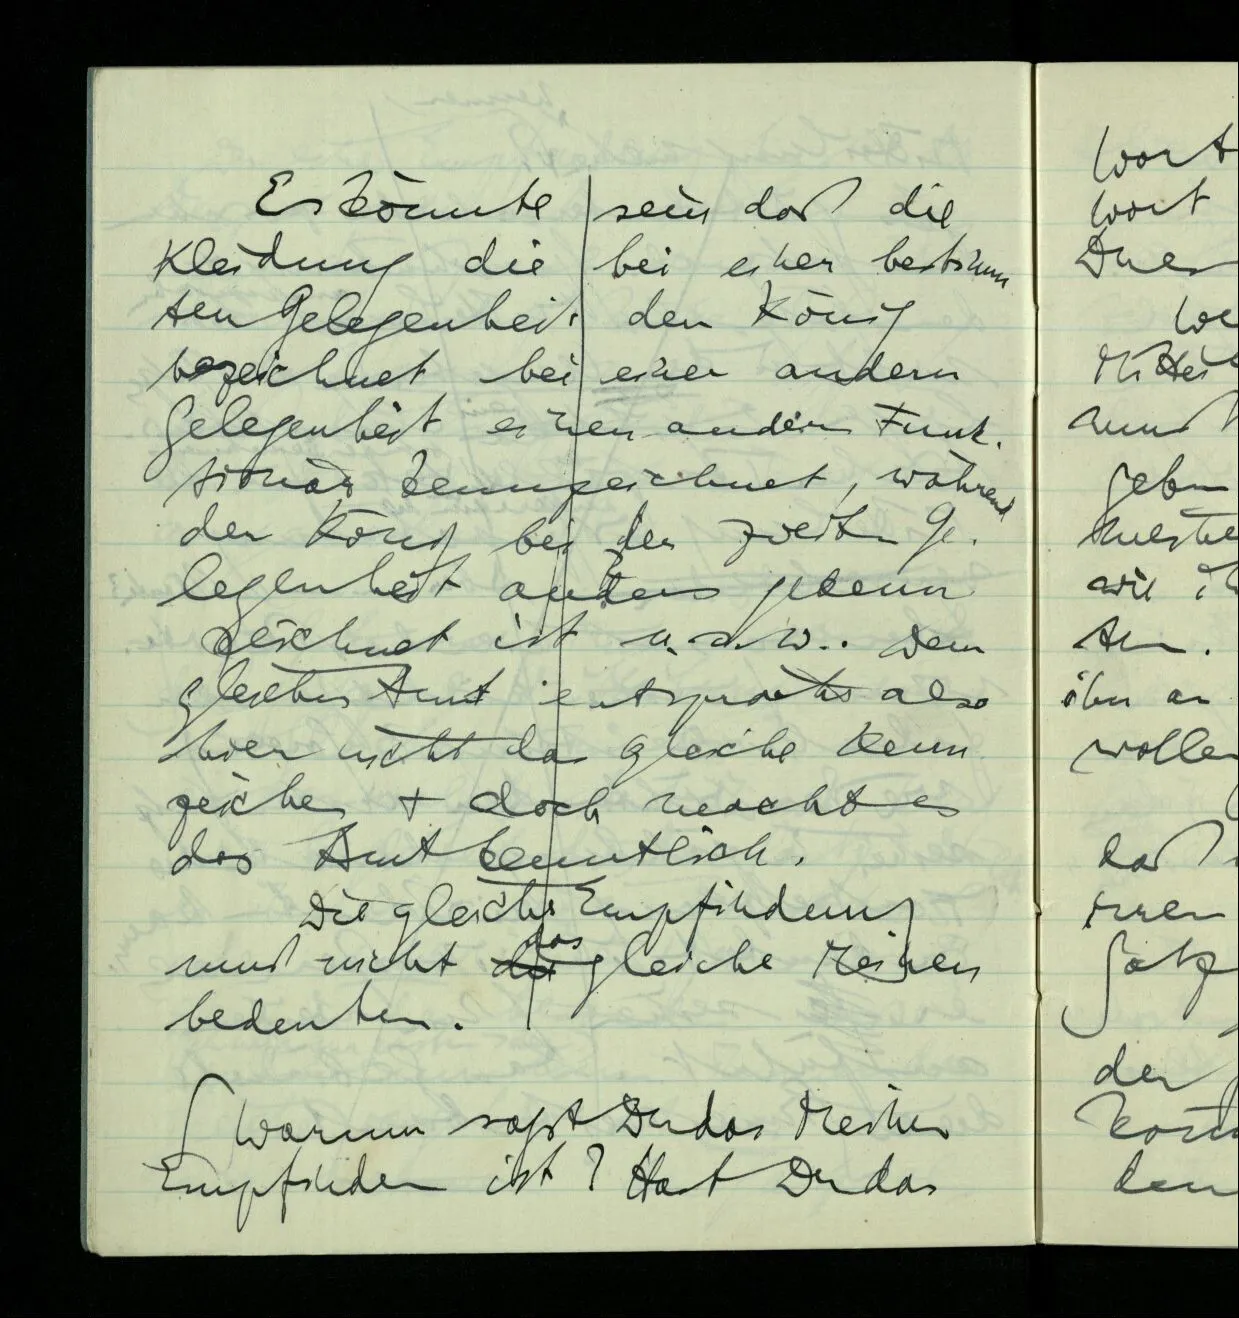 Es könnte sein daß die
Kleidung die bei einer bestimm
ten Gelegenheit den König
bezeichnet bei einer andern
Gelegenheit einen andern Funk-
tionär kennzeichnet, während
der König bei der zweiten Ge-
legenheit anders gekenn
zeichnet ist u.s.w.. Dem
gleichen Amt entspräche also
hier nicht das gleiche Kenn
zeichen + doch macht es
das Amt kenntlich.
Die gleiche Empfindung
muß nicht das gleiche Meinen
bedeuten.
∫ Warum sagst Du das Meinen
Empfinden ist? Hast Du das
Wort
Wort
den
wollen
daß
der